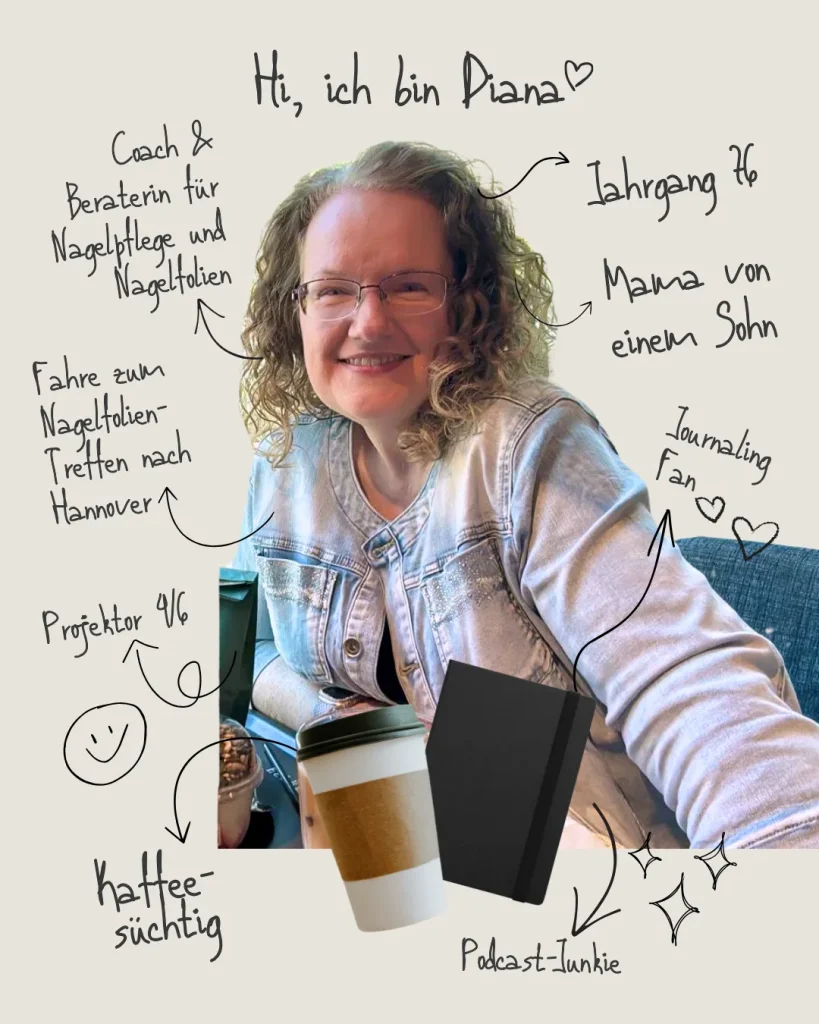 Hi, ich bin Diana
Coach &
Beraterin für
Nagelpflege und
Nagelfolien
Jahrgang 76
Mama von
einem Sohn
Fahre zum
Nagelfolien-
Treffen nach
Hannover
Journaling
Fan
Projektor 4/6
Kaffee-
süchtig
Podcast-Junkie